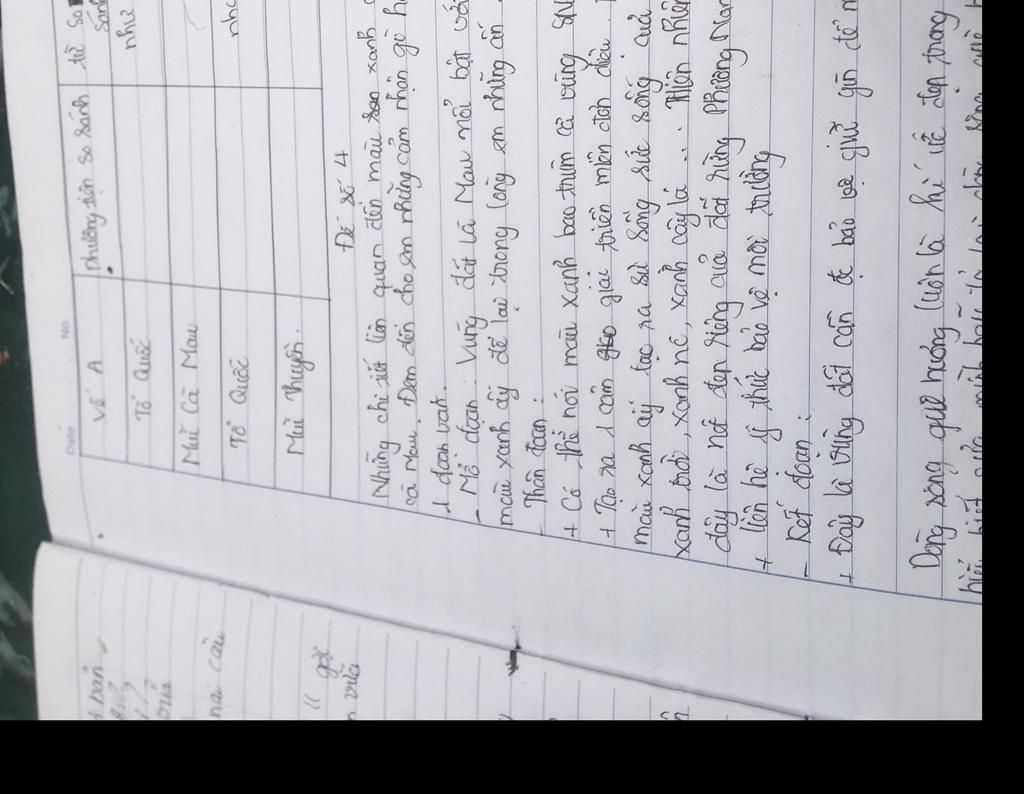 Date No.
Vế A Phương tiện so sánh từ so sánh
Tổ Quốc như
Mũi Cà Mau
Tổ Quốc như
Mũi thuyền.
Đề số 4
Những chi tiết liên quan đến màu xanh
Cà Mau. Đem đến cho em những cảm nhận gì
1 đoạn văn.
- Mở đoạn: Vùng đất là Mau nổi bật với
màu xanh ấy để lại trong lòng em những ấn
- Thân đoạn:
+ Có thể nói màu xanh bao trùm cả vùng
+ Tạo ra 1 cảm giác triền miên đơn điệu.
màu xanh ấy tạo ra sức sống sức sống của
xanh trời, xanh nc, xanh cây lá... Thiên nhiên
đây là nét đẹp riêng của đất rừng Phương Nam
+ liên hệ ý thức bảo vệ môi trường
- Kết đoạn:
+ Đây là vùng đất cần đc bảo vệ giữ gìn để
Dòng sông quê hương luôn là hồ vẻ đẹp trong
hiểu biết của mình hãy tả lại dòng sông quê
nai cần
" gợi
vừa